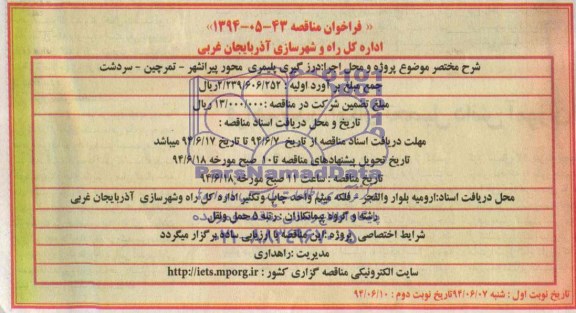 « فراخوان مناقصه ۴۳-۰۵-۱۳۹۴»
اداره کل راه و شهرسازی آذربایجان غربی
شرح مختصر موضوع پروژه و محل اجرا:درز گیری پلیمری محور پیرانشهر - تمرچین - سردشت
جمع مبلغ برآورد اولیه : ۲/۲۳۹/۶۰۶/۲۵۲ریال
مبلغ تضمین شرکت در مناقصه :۱۳/۰۰۰/۰۰۰ ریال
تاریخ و محل دریافت اسناد مناقصه :
مهلت دریافت اسناد مناقصه از تاریخ ۹۴/۶/۷ تا تاریخ ۹۴/۶/۱۷ میباشد
تاریخ تحویل پیشنهادهای مناقصه تا۱۰ صبح مورخه ۹۴/۶/۱۸
تاریخ مناقصه : ساعت ۱۱ صبح مورخه ۹۴/۶/۱۸
محل دریافت اسناد:ارومیه بلوار والفجر - فلکه میثم واحد چاپ وتکثیر اداره کل راه وشهرسازی آذربایجان غربی
رشته و گروه پیمانکاران : رتبه ۵ حمل ونقل
شرایط اختصاصی پروژه :این مناقصه با ارزیابی ساده برگزار میگردد
مدیریت :راهداری
سایت الکترونیکی مناقصه گزاری کشور : http://iets.mporg.ir
تاریخ نوبت اول : شنبه ۹۴/۰۶/۰۷تاریخ نوبت دوم : ۹۴/۰۶/۱۰
ParsNamadData